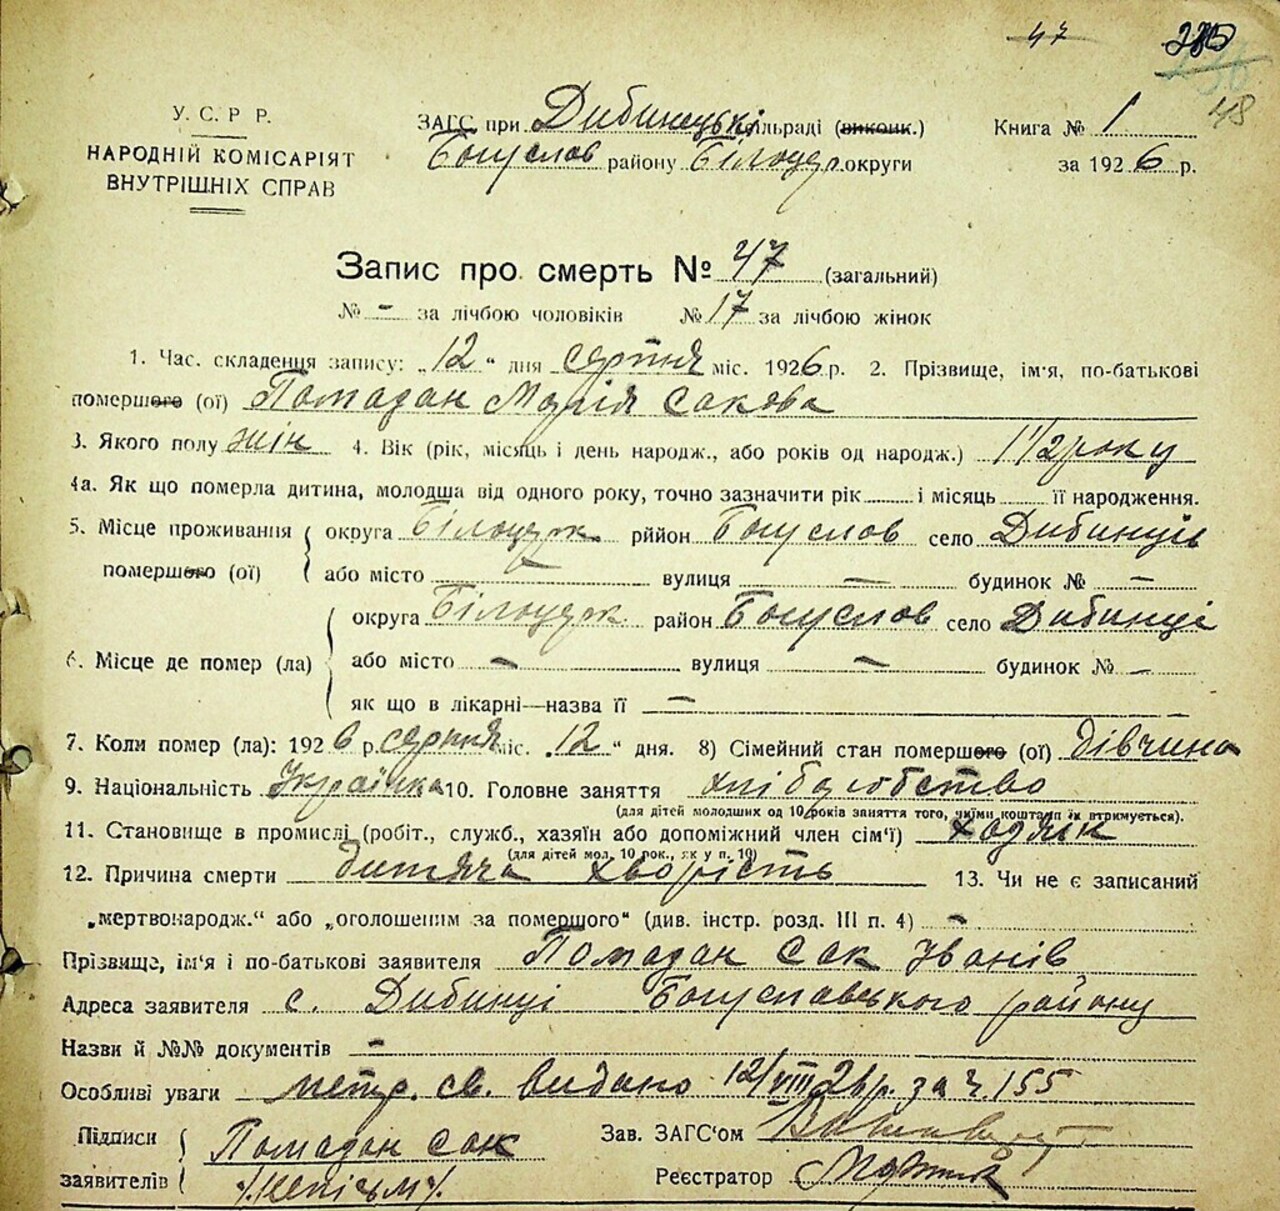 47
У. С. Р Р.
НАРОДНІЙ КОМІСАРІЯТ
ВНУТРІШНІХ СПРАВ
ЗАГС при Дибинецькі сільраді (виконк.)
Богуслов району Білоцерк. округи
Книга № 1
48
за 1926 р.
Запис про смерть № 47 (загальний)
№ - за лічбою чоловіків № 17 за лічбою жінок
1. Час. складення запису: „12" дня серпня міс. 1926 р. 2. Прізвище, ім'я, по-батькові
помершого (ої) Помадан Марія Сакова
3. Якого полу жін 4. Вік (рік, місяць і день народж., або років од народж.) 1 1/2 року
4а. Як що померла дитина, молодша від одного року, точно зазначити рік і місяць її народження.
5. Місце проживання помершого (ої) округа Білоцерк. рййон Богуслов село Дибинців
або місто — вулиця — будинок № —
6. Місце де помер (ла) округа Білоцерк. район Богуслов село Дибинці
або місто — вулиця — будинок № —
як що в лікарні—назва її —
7. Коли помер (ла): 1926 р. серпня міс. „12" дня. 8) Сімейний стан помершого (ої) дівчина
9. Національність Українка 10. Головне заняття хліборобство
(для дітей молодших од 10 років заняття того, чиїми коштами їх втримується).
11. Становище в промислі (робіт., служб., хазяїн або допоміжний член сім'ї)
(для дітей мол. 10 рок., як у п. 10)
12. Причина смерти дитяча хворість 13. Чи не є записаний
„мертвонародж." або „оголошеним за помершого" (див. інстр. розд. III п. 4) -
Прізвище, ім'я і по-батькові заявителя Помадан Сак Іванів
Адреса заявителя с. Дибинці Богуславського району
Назви й №№ документів —
Особливі уваги метр. св. видано 12/VIII 26 р. за ч. 155
Підписи заявителів Помадан Сак
Зав. ЗАГС'ом
Реєстратор